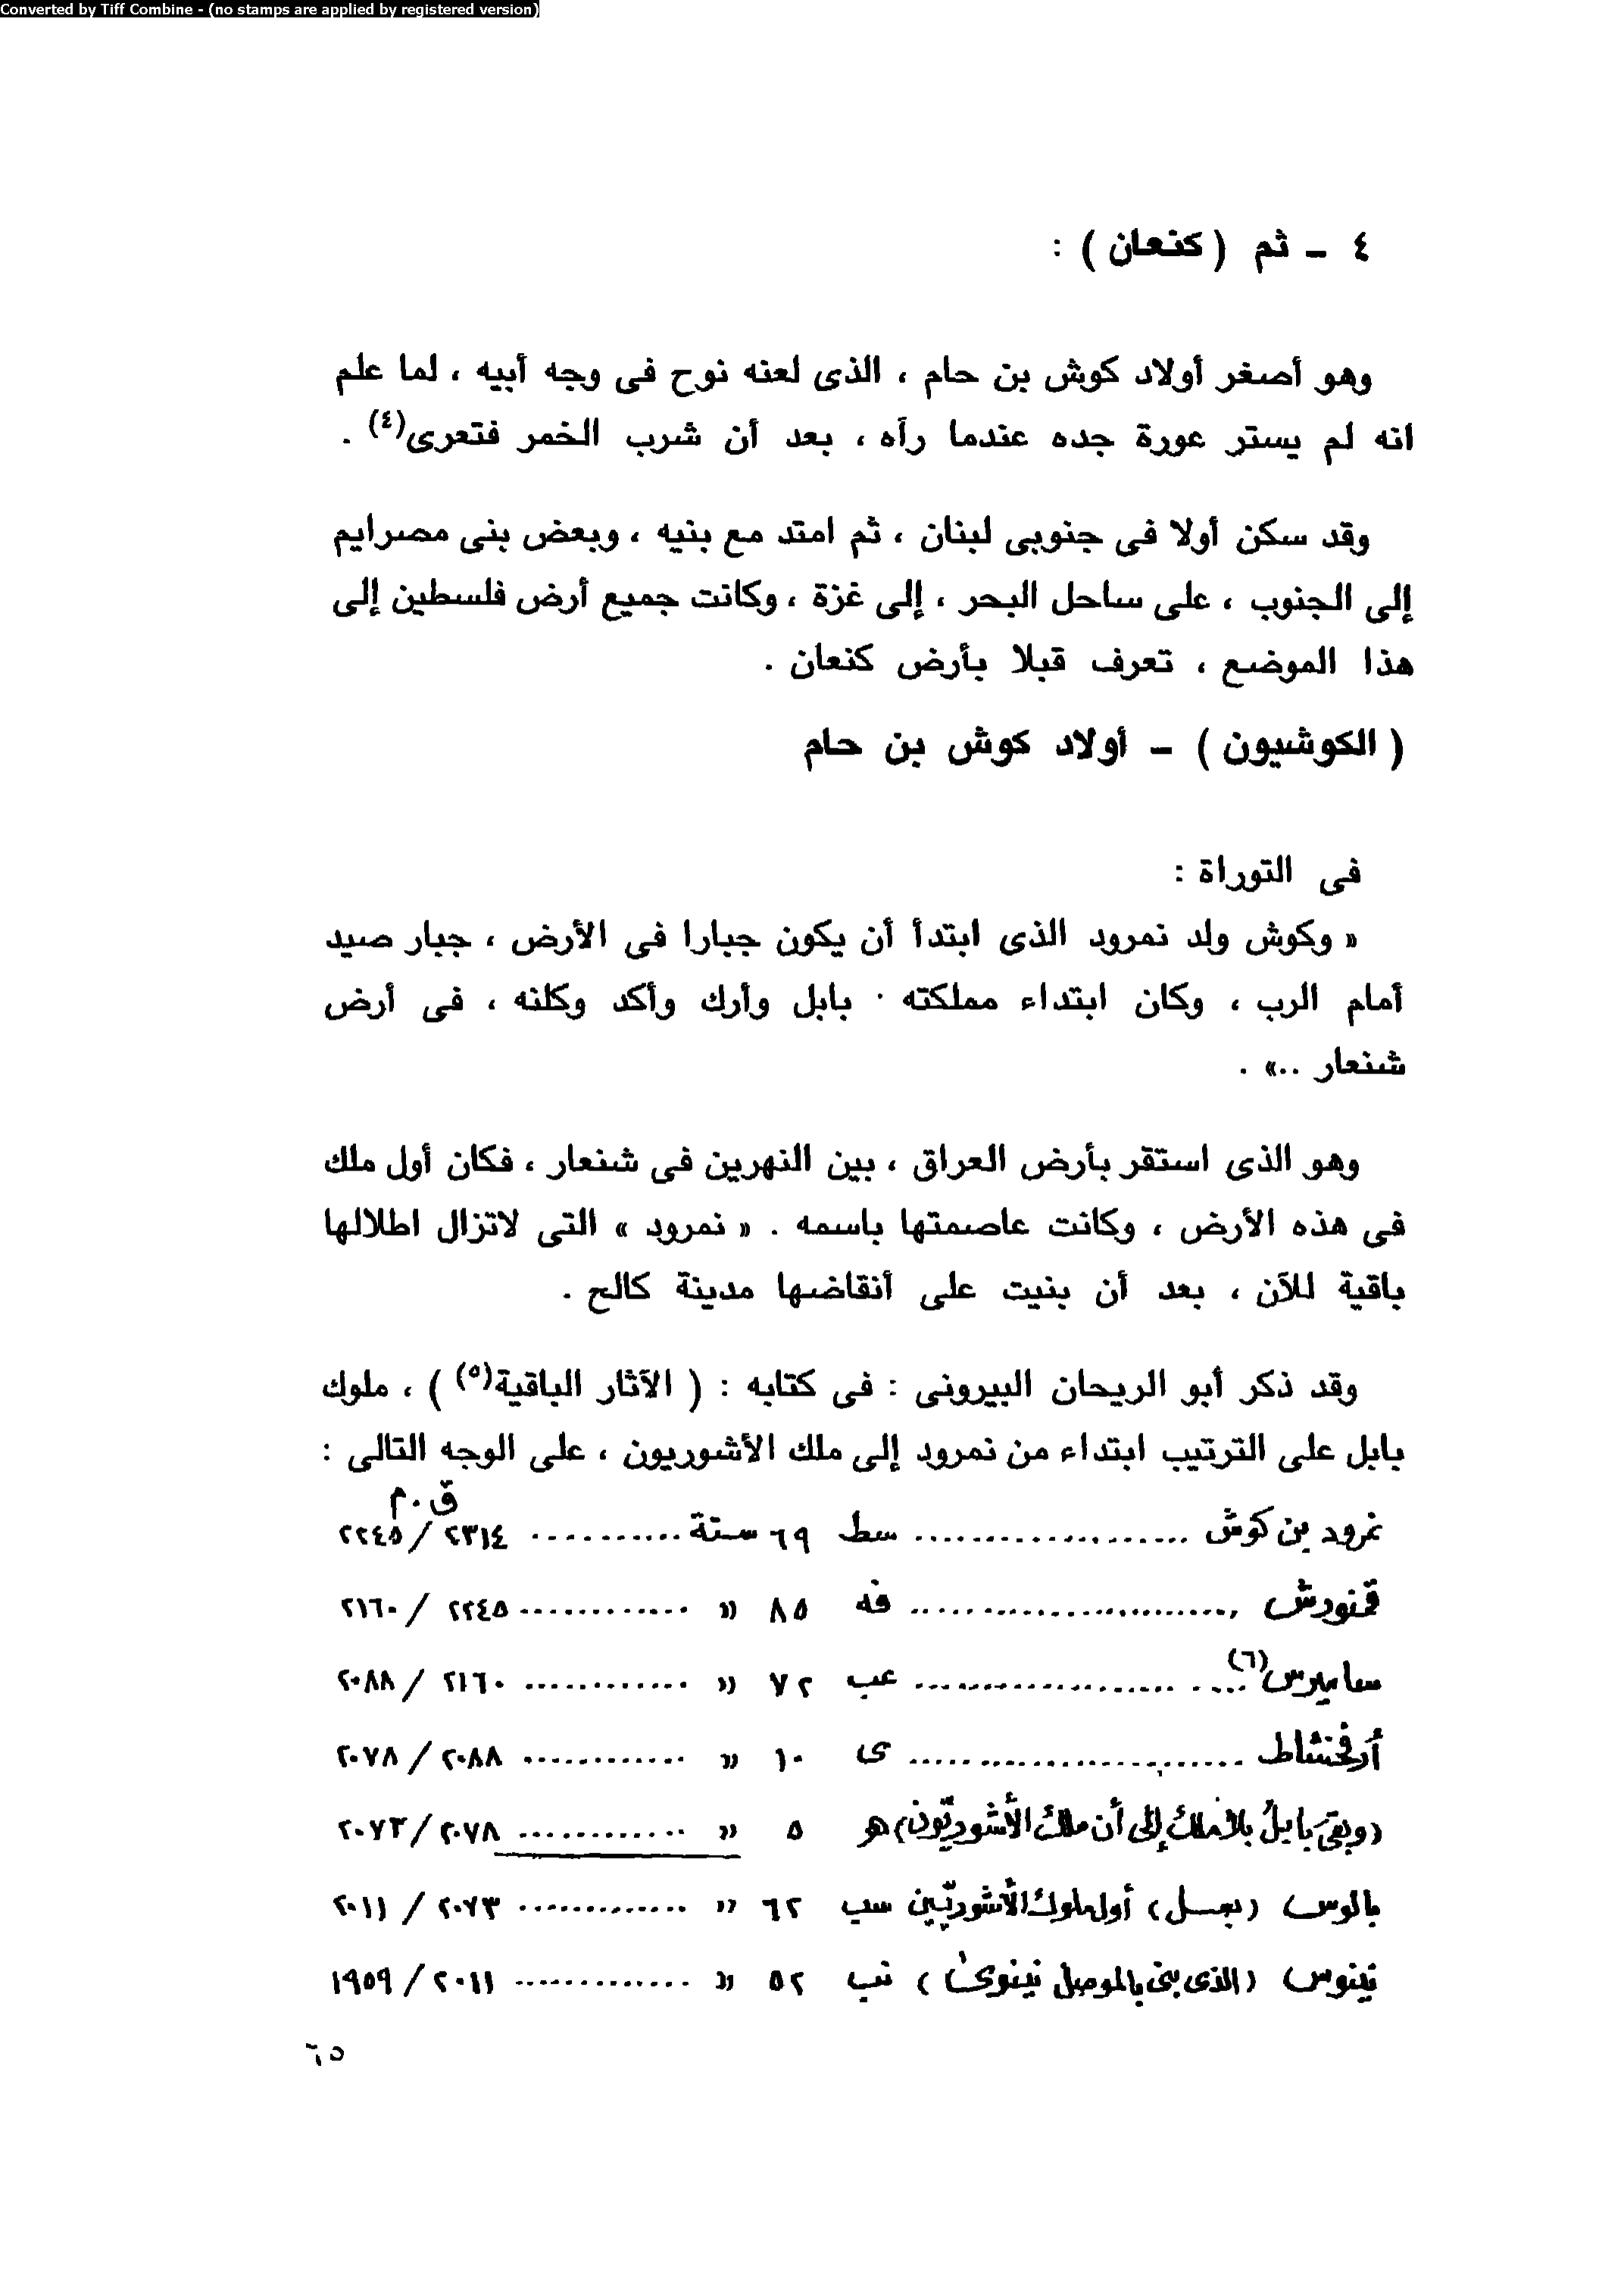 Converted by Tiff Combine - (no stamps are applied by registered version)
٤ ــ ثم ( كنعان ) :
وهو أصغر أولاد كوش بن حام ، الذى لعنه نوح فى وجه أبيه ، لما علم
انه لم يستر عورة جده عندما رآه ، بعد أن شرب الخمر فتعرى(٤) .
وقد سكن أولا فى جنوبى لبنان ، ثم امتد مع بنيه ، وبعض بنى مصرايم
إلى الجنوب ، على ساحل البحر ، إلى غزة ، وكانت جميع أرض فلسطين إلى
هذا الموضع ، تعرف قبلا بأرض كنعان .
( الكوشيون ) ــ أولاد كوش بن حام
فى التوراة :
« وكوش ولد نمرود الذى ابتدأ أن يكون جبارا فى الأرض ، جبار صيد
أمام الرب ، وكان ابتداء مملكته . بابل وأرك وأكد وكلنه ، فى أرض
شنعار ..» .
وهو الذى استقر بأرض العراق ، بين النهرين فى شنعار ، فكان أول ملك
فى هذه الأرض ، وكانت عاصمتها باسمه . « نمرود » التى لاتزال اطلالها
باقية للآن ، بعد أن بنيت على أنقاضها مدينة كالح .
وقد ذكر أبو الريحان البيرونى : فى كتابه : ( الآثار الباقية(٥) ) ، ملوك
بابل على الترتيب ابتداء من نمرود إلى ملك الأشوريون ، على الوجه التالى :
ق.م
نمرود بن كوش .................... سط ٦٩ ستة ........... ٢٣١٤ / ٢٢٤٥
قمنودش ......................... فه ٨٥ » ............ ٢٢٤٥ / ٢١٦٠
ساميرس(٦) ...................... عب ٧٢ » ............ ٢١٦٠ / ٢٠٨٨
أرفخشاط ........................ ى ١٠ » ............ ٢٠٨٨ / ٢٠٧٨
(وبقى بابل بلا ملك إلى أن ملك الأشوريون) هـ ٥ » ............ ٢٠٧٨ / ٢٠٧٣
بالوس (بعل) أول ملوك الأشوريين سب ٦٢ » ............ ٢٠٧٣ / ٢٠١١
نينوس (الذى بنى بالموصل نينوى) نب ٥٢ » ............ ٢٠١١ / ١٩٥٩
٦٥